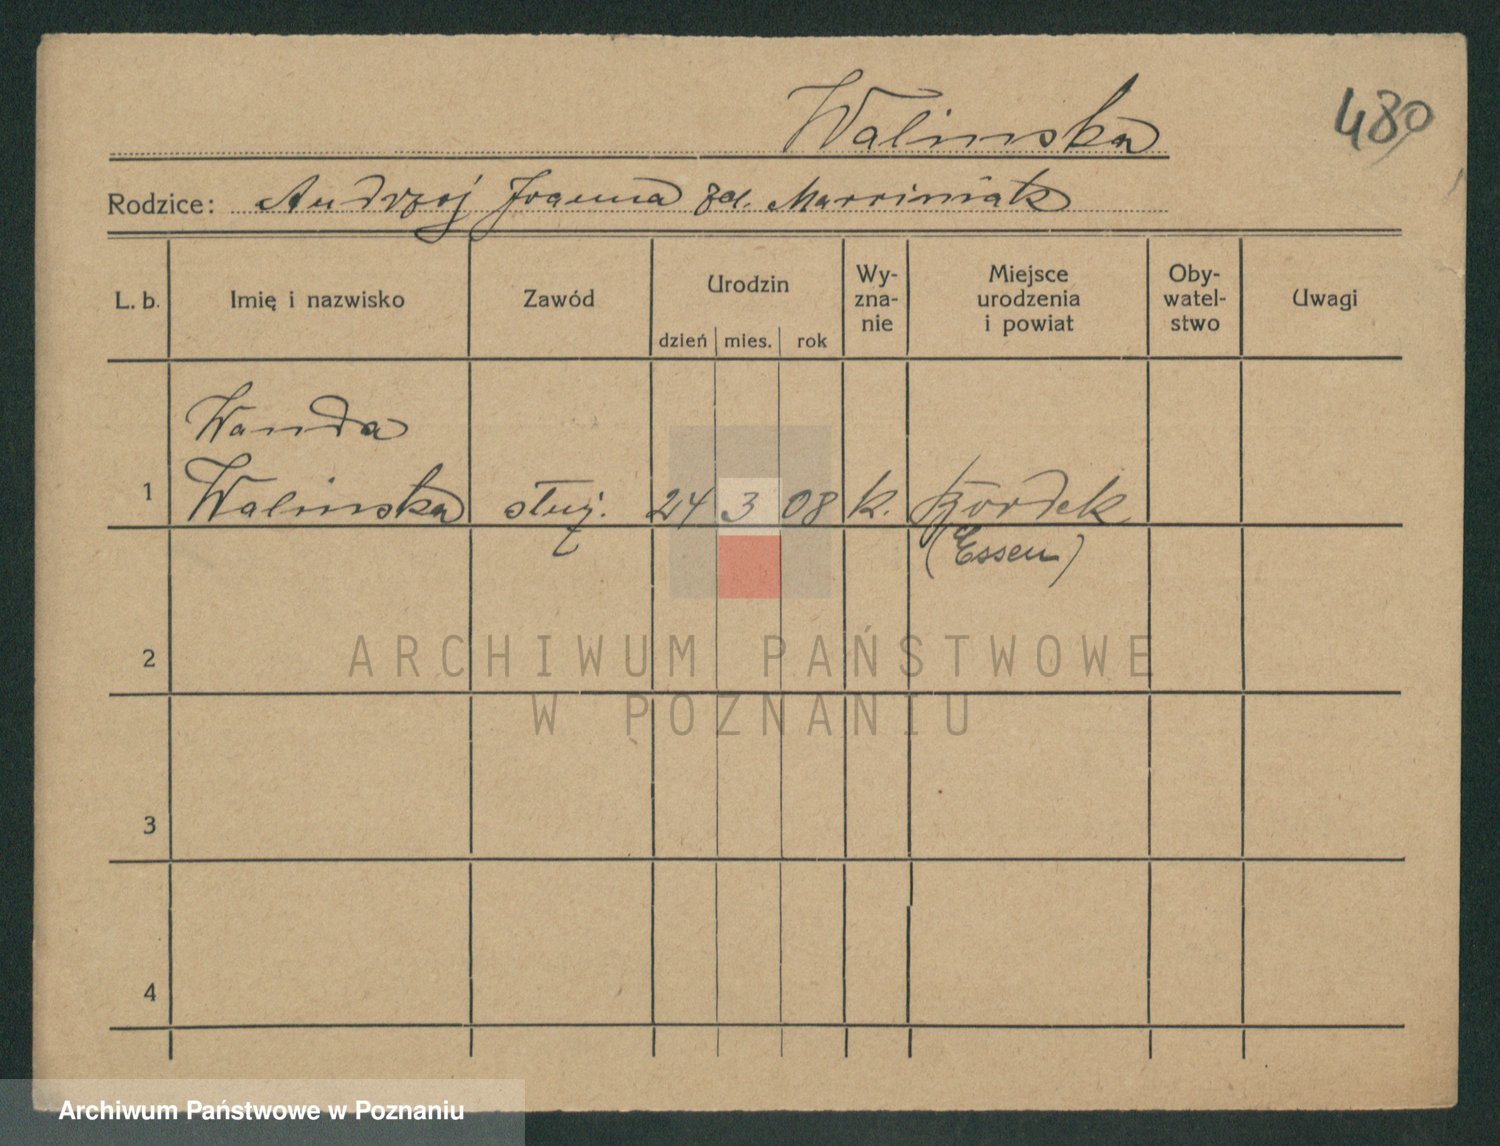 Walinska
480
Rodzice: Andrzej Joanna zd. Marciniak
L. b. Imię i nazwisko Zawód Urodzin dzień mies. rok Wy-zna-nie Miejsce urodzenia i powiat Oby-watel-stwo Uwagi
Wanda
1 Walinska służ. 24 3 08 k.
(Essen)
2
3
4
ARCHIWUM PAŃSTWOWE
W POZNANIU
Archiwum Państwowe w Poznaniu